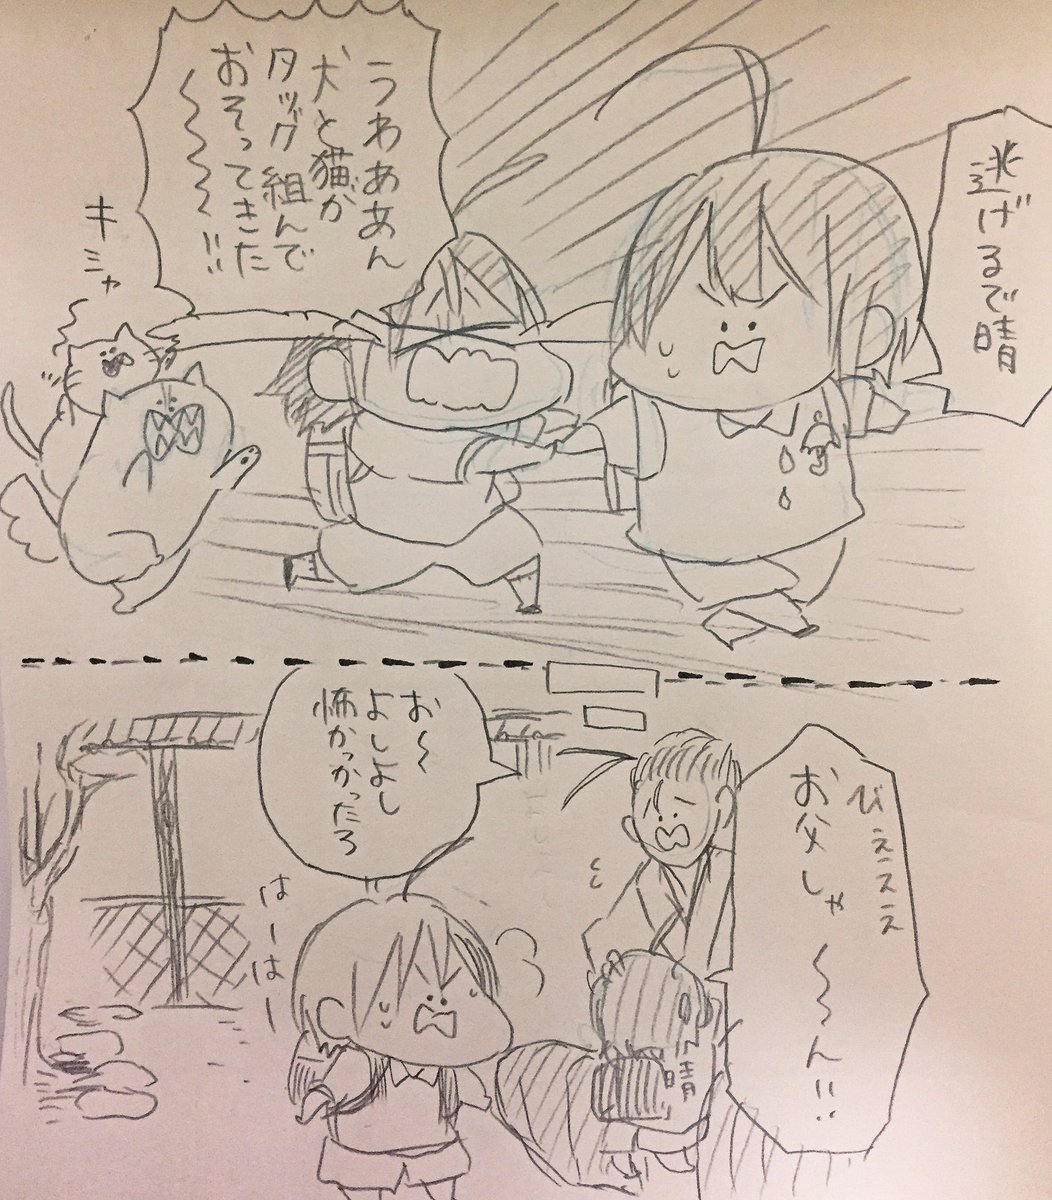 逃げるで晴
うわああん
犬と猫が
タッグ組んで
おそってきた
〜〜〜〜!!
キシャ
びぇぇぇぇ
お父しゃ〜〜ん!!
お〜
よしよし
怖かったろ
はーはー
晴